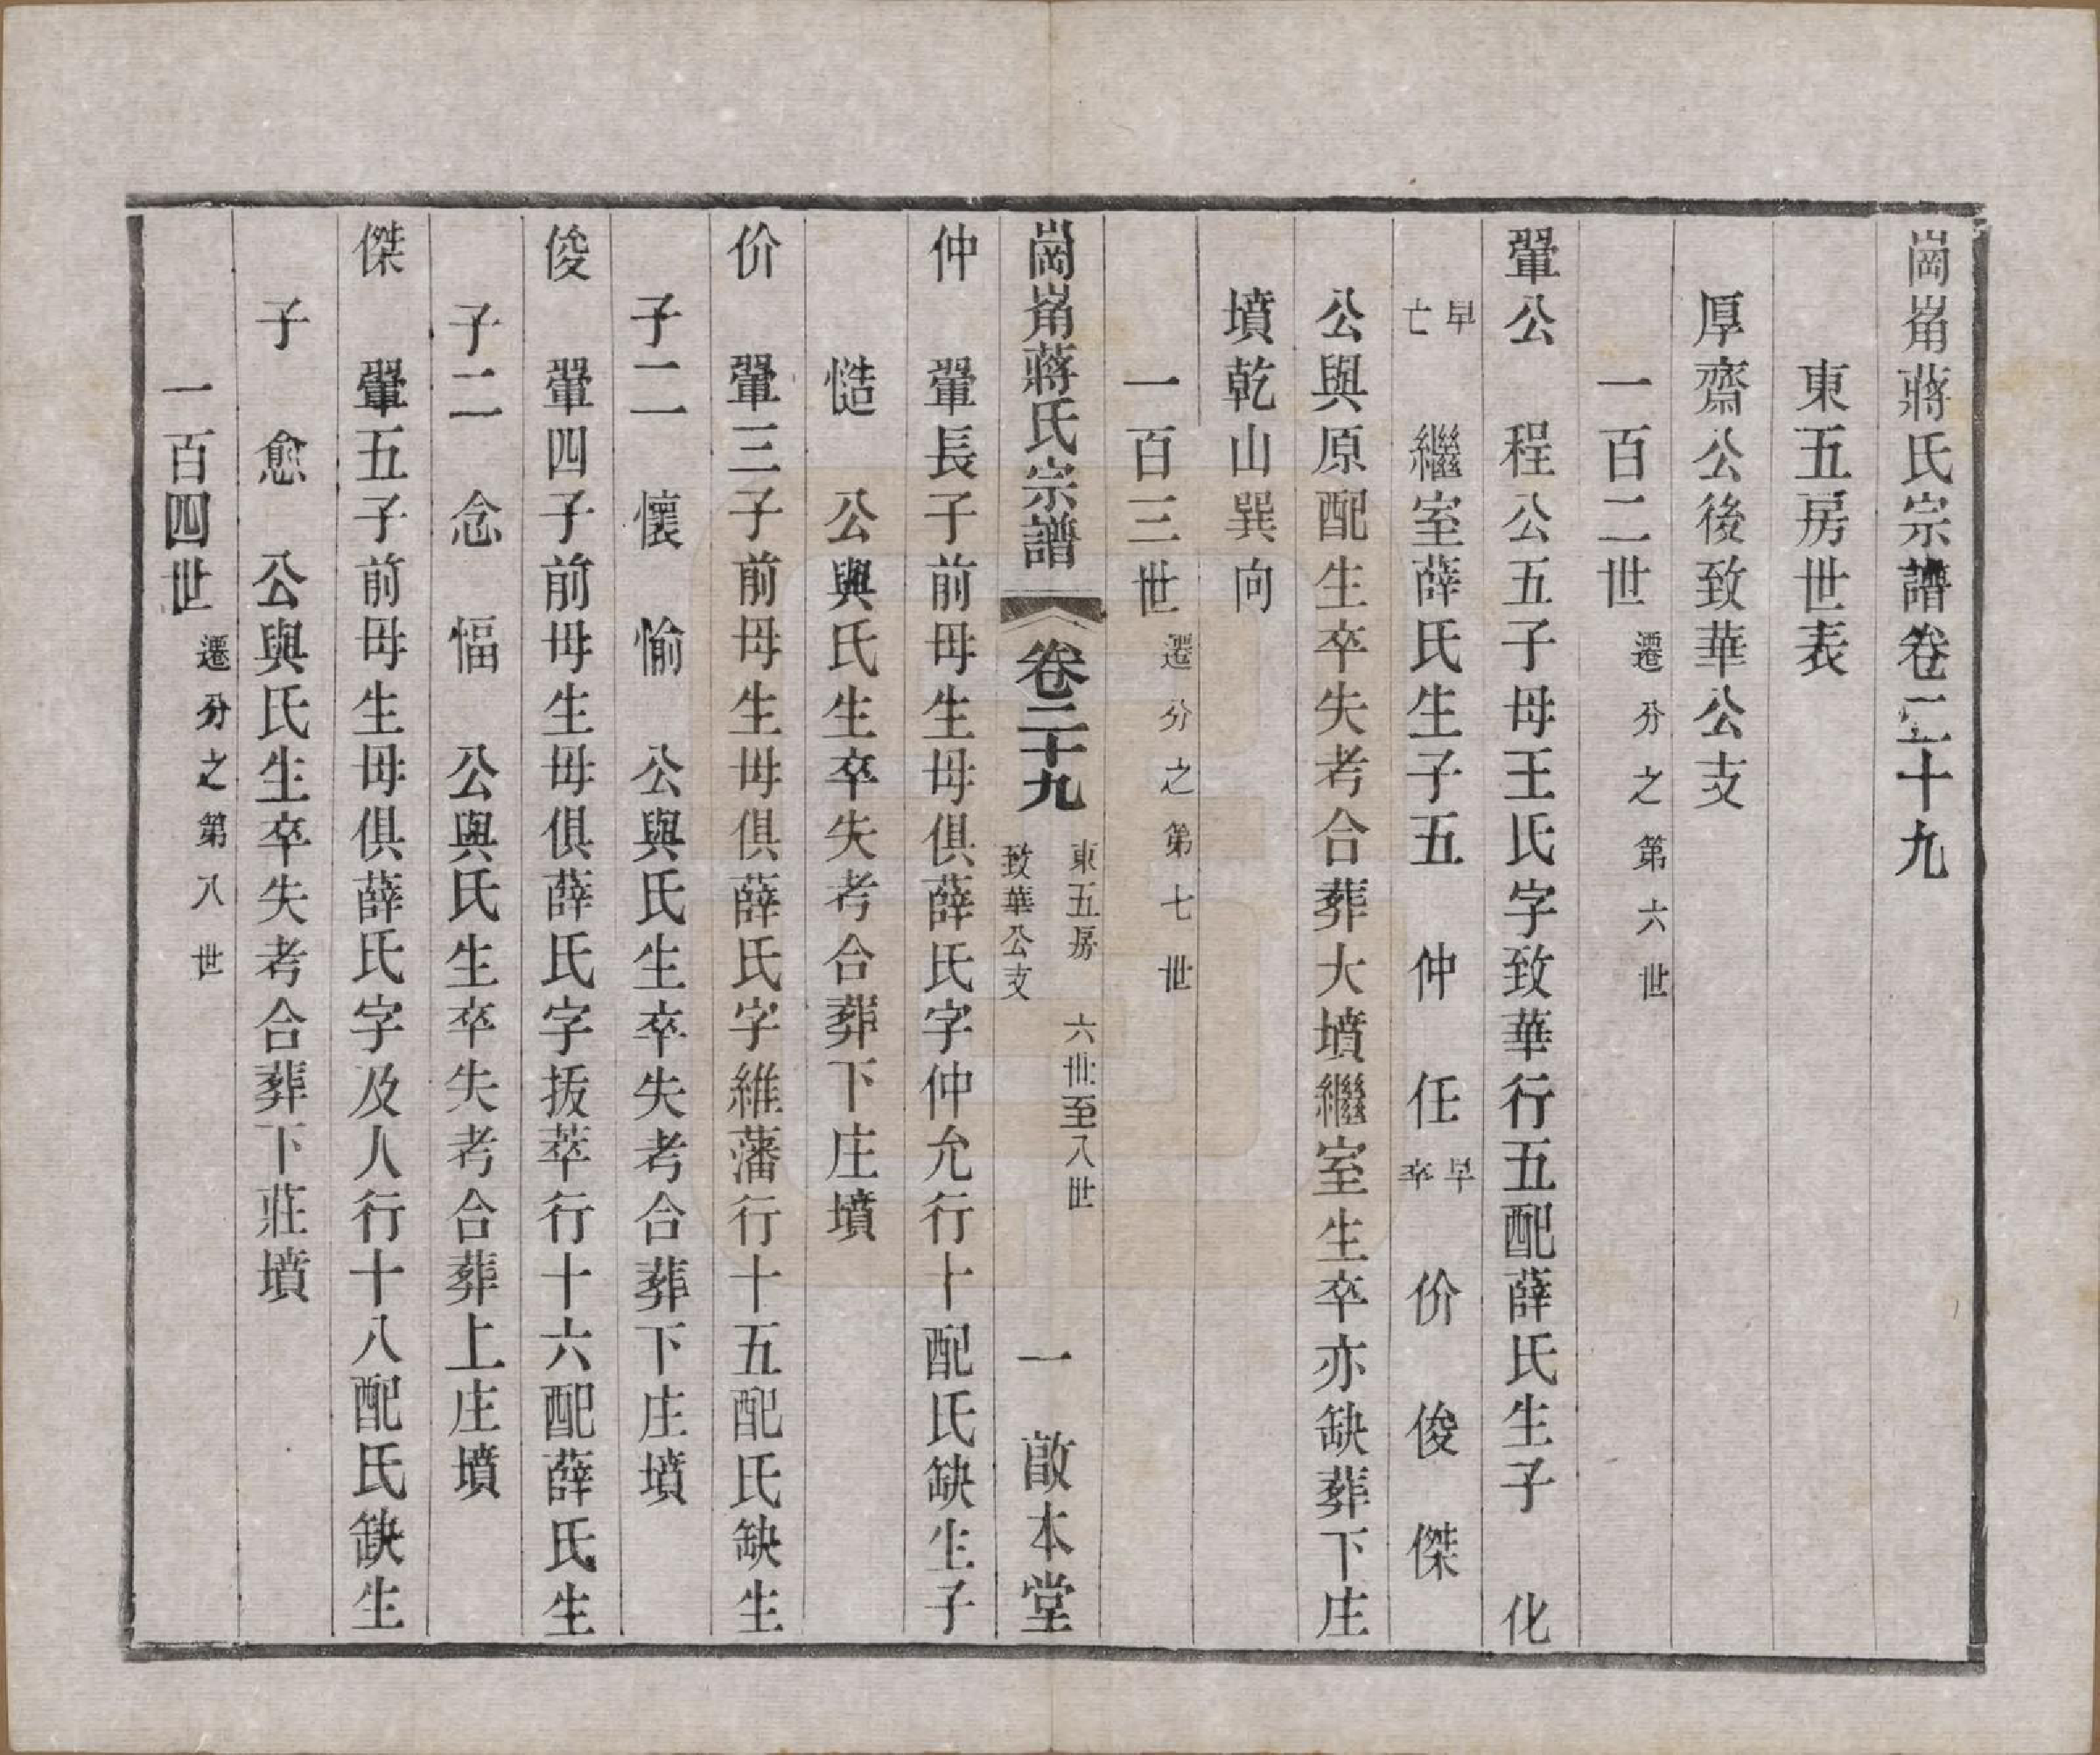 崗崗蔣氏宗譜卷二十九
東五房世表
厚齋公後致華公支
一百二世遷分之第六世
鞏公 程公五子母王氏字致華行五配薛氏生子 化
早亡 繼室薛氏生子五 仲 任早卒 价 俊 傑
公與原配生卒失考合葬大墳繼室生卒亦缺葬下庄
墳乾山巽向
一百三世遷分之第七世
崗崗蔣氏宗譜 卷二十九 東五房致華公支 六世至八世 一 啟本堂
仲 鞏長子前母生母俱薛氏字仲允行十配氏缺生子
慥 公與氏生卒失考合葬下庄墳
价 鞏三子前母生母俱薛氏字維藩行十五配氏缺生
子二 懷 愉 公與氏生卒失考合葬下庄墳
俊 鞏四子前母生母俱薛氏字拔萃行十六配薛氏生
子二 念 愊 公與氏生卒失考合葬上庄墳
傑 鞏五子前母生母俱薛氏字及人行十八配氏缺生
子 愈 公與氏生卒失考合葬下莊墳
一百四世遷分之第八世